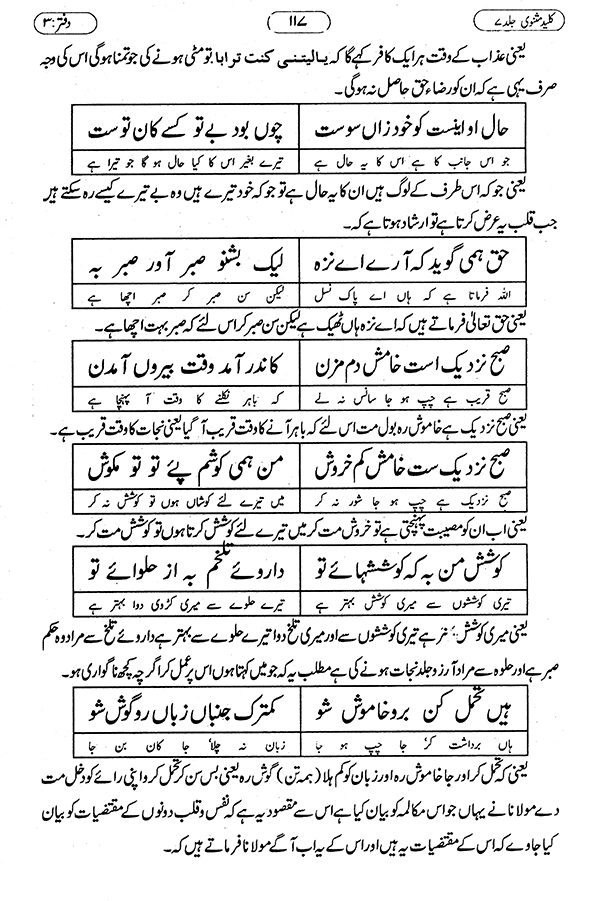 کلید مثنوی جلد ۷ ۱۱۷ دفتر: ۳
یعنی عذاب کے وقت ہر ایک کافر کہے گا کہ یالیتنی کنت ترابا تو مٹی ہونے کی جو تمنا ہوگی اس کی وجہ
صرف یہی ہے کہ ان کو رضاء حق حاصل نہ ہوگی۔
حال او اینست کو خود زاں سوست چوں بود بے تو کسے کان توست
جو اس جانب کا ہے اس کا یہ حال ہے تیرے بغیر اس کا کیا حال ہو گا جو تیرا ہے
یعنی جو کہ اس طرف کے لوگ ہیں ان کا یہ حال ہے تو جو کہ خود تیرے ہیں وہ بے تیرے کیسے رہ سکتے ہیں
جب قلب یہ عرض کرتا ہے تو ارشاد ہوتا ہے کہ۔
حق ہمی گوید کہ آرے اے نزہ لیک بشنو صبر آور صبر بہ
اللہ فرماتا ہے کہ ہاں اے پاک نسل لیکن سن صبر کر صبر اچھا ہے
یعنی حق تعالیٰ فرماتے ہیں کہ اے نزہ ہاں ٹھیک ہے لیکن سن صبر کر اس لئے کہ صبر بہت اچھا ہے۔
صبح نزدیک است خامش دم مزن کاندر آمد وقت بیروں آمدن
صبح قریب ہے چپ ہو جا سانس نہ لے کہ باہر نکلنے کا وقت آ پہنچا ہے
یعنی صبح نزدیک ہے خاموش رہ بول مت اس لئے کہ باہر آنے کا وقت قریب آ گیا یعنی نجات کا وقت قریب ہے۔
صبح نزدیک ست خامش کم خروش من ہمی کوشم پئے تو تو مکوش
صبح نزدیک ہے چپ ہو جا شور نہ کر میں تیرے لئے کوشاں ہوں تو کوشش نہ کر
یعنی اب ان کو مصیبت پہنچتی ہے تو خروش مت کر میں تیرے لئے کوشش کرتا ہوں تو کوشش مت کر۔
کوشش من بہ کہ کوششہائے تو داروئے تلخم بہ از حلوائے تو
تیری کوششوں سے میری کوشش بہتر ہے تیرے حلوے سے میری کڑوی دوا بہتر ہے
یعنی میری کوشش ہے تیری کوششوں سے اور میری تلخ دوا تیرے حلوے سے بہتر ہے داروئے تلخ سے مراد وہ حکم
صبر ہے اور حلوہ سے مراد آرزو جلد نجات ہونے کی ہے مطلب یہ کہ جو میں کہتا ہوں اس پر عمل کر اگرچہ کچھ ناگواری ہو۔
ہیں تحمل کن برو خاموش شو کمترک جنباں زباں رو گوش شو
ہاں برداشت کر جا چپ ہو جا زبان نہ چلا جا کان بن جا
یعنی کہ تحمل کر اور جا خاموش رہ اور زبان کو کم ہلا (ہمہ تن) گوش رہ یعنی بس سن کر تحمل کرو اپنی رائے کو دخل مت
دے مولانا نے یہاں جو اس مکالمہ کو بیان کیا ہے اس سے مقصود یہ ہے کہ نفس و قلب دونوں کے مقتضیات کو بیان
کیا جاوے کہ اس کے مقتضیات یہ ہیں اور اس کے یہ اب آگے مولانا فرماتے ہیں کہ۔